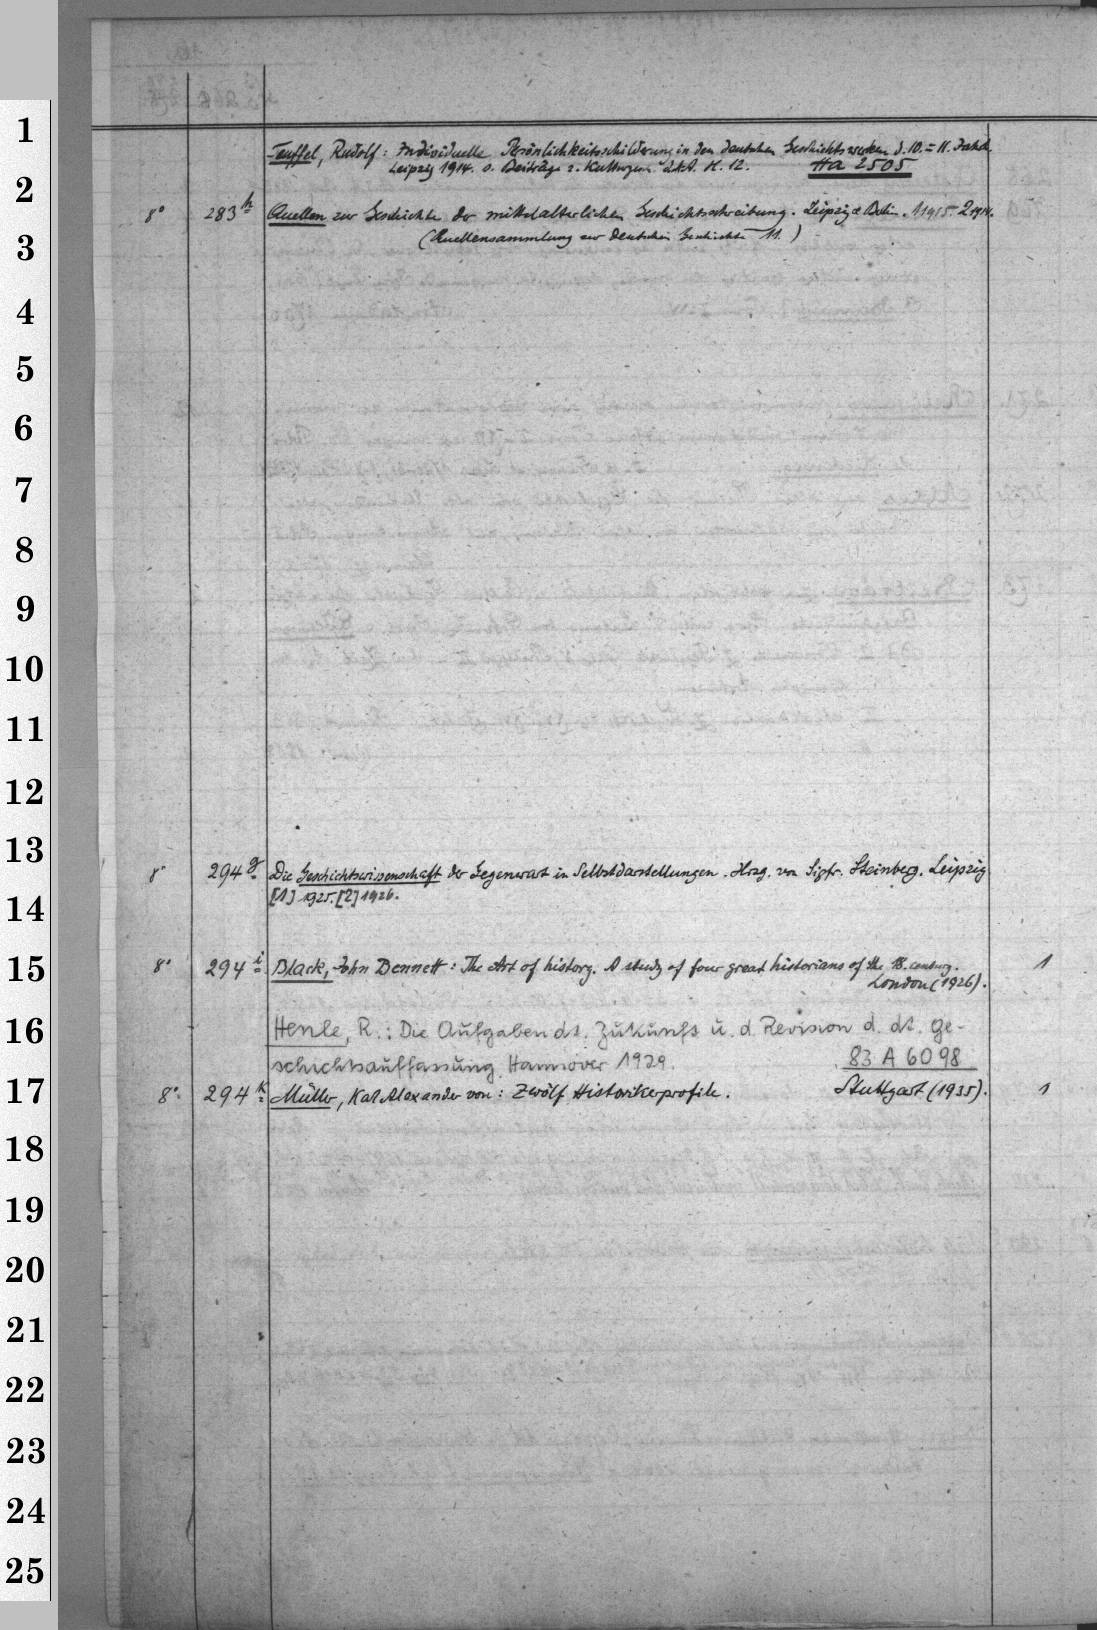 1
2
3
4
5
6
7
8
9
10
11
12
13
14
15
16
17
18
19
20
21
22
23
24
25
Teuffel, Rudolf: Individuelle Persönlichkeitsschilderung in den deutschen Geschichtswerken d. 10. u. 11. Jahrh.
Leipzig 1914. s. Beiträge z. Kulturgesch. d. MA. H. 12. Ha 2505
8° 283 h Quellen zur Geschichte der mittelalterlichen Geschichtsschreibung. Leipzig & Berlin. 1 1915 2 1914.
(Quellensammlung zur deutschen Geschichte 11.)
8° 294 g Die Geschichtswissenschaft der Gegenwart in Selbstdarstellungen. Hrsg. von Sigfr. Steinberg. Leipzig
[1] 1925. [2] 1926.
8° 294 i Black, John Bennett: The Art of history. A study of four great historians of the 18. century. 1
London (1926).
Henle, R.: Die Aufgaben dt. Zukunft u. d. Revision d. dt. Ge-
schichtsauffassung. Hannover 1929. 83 A 6098
8° 294 k Müller, Karl Alexander von: Zwölf Historikerprofile. Stuttgart (1935). 1